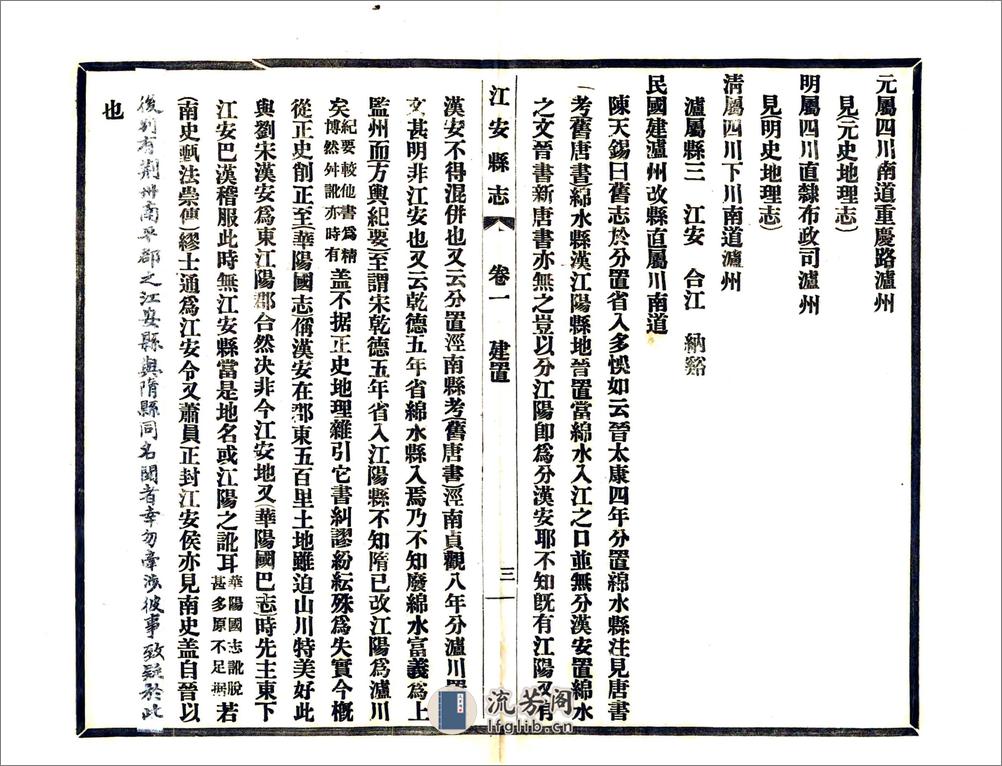 元屬四川南道重慶路瀘州
見元史地理志
明屬四川直隸布政司瀘州
見明史地理志
清屬四川下川南道瀘州
瀘屬縣三 江安 合江 納谿
民國建瀘州改縣直屬川南道
陳天錫曰舊志於分置省入多悞如云晉太康四年分置綿水縣注見唐書
考舊唐書綿水縣漢江陽縣地晉置當綿水入江之口並無分漢安置綿水
之文晉書新唐書亦無之豈以分江陽卽爲分漢安耶不知旣有江陽又有
江安縣志 卷一 建置 三
漢安不得混併也又云分置涇南縣考舊唐書涇南貞觀八年分瀘川置
文甚明非江安也又云乾德五年省綿水縣入焉乃不知廢綿水富義爲上
監州而方輿紀要至謂宋乾德五年省入江陽縣不知隋已改江陽爲瀘川
矣紀要較他書爲精博然舛訛亦時有盖不据正史地理雜引它書糾謬紛紜殊爲失實今概
從正史創正至華陽國志偁漢安在郡東五百里土地雖迫山川特美好此
與劉宋漢安爲東江陽郡合然決非今江安地又華陽國巴志時先主東下
江安巴漢稽服此時無江安縣當是地名或江陽之訛耳華陽國志訛脫甚多原不足據若
南史甄法崇傳繆士通爲江安令又蕭員正封江安侯亦見南史盖自晉以
後別有荊州南平郡之江安縣與隋縣同名閱者幸勿牽涉彼事致疑於此
也
流芳阁
lfglib.cn